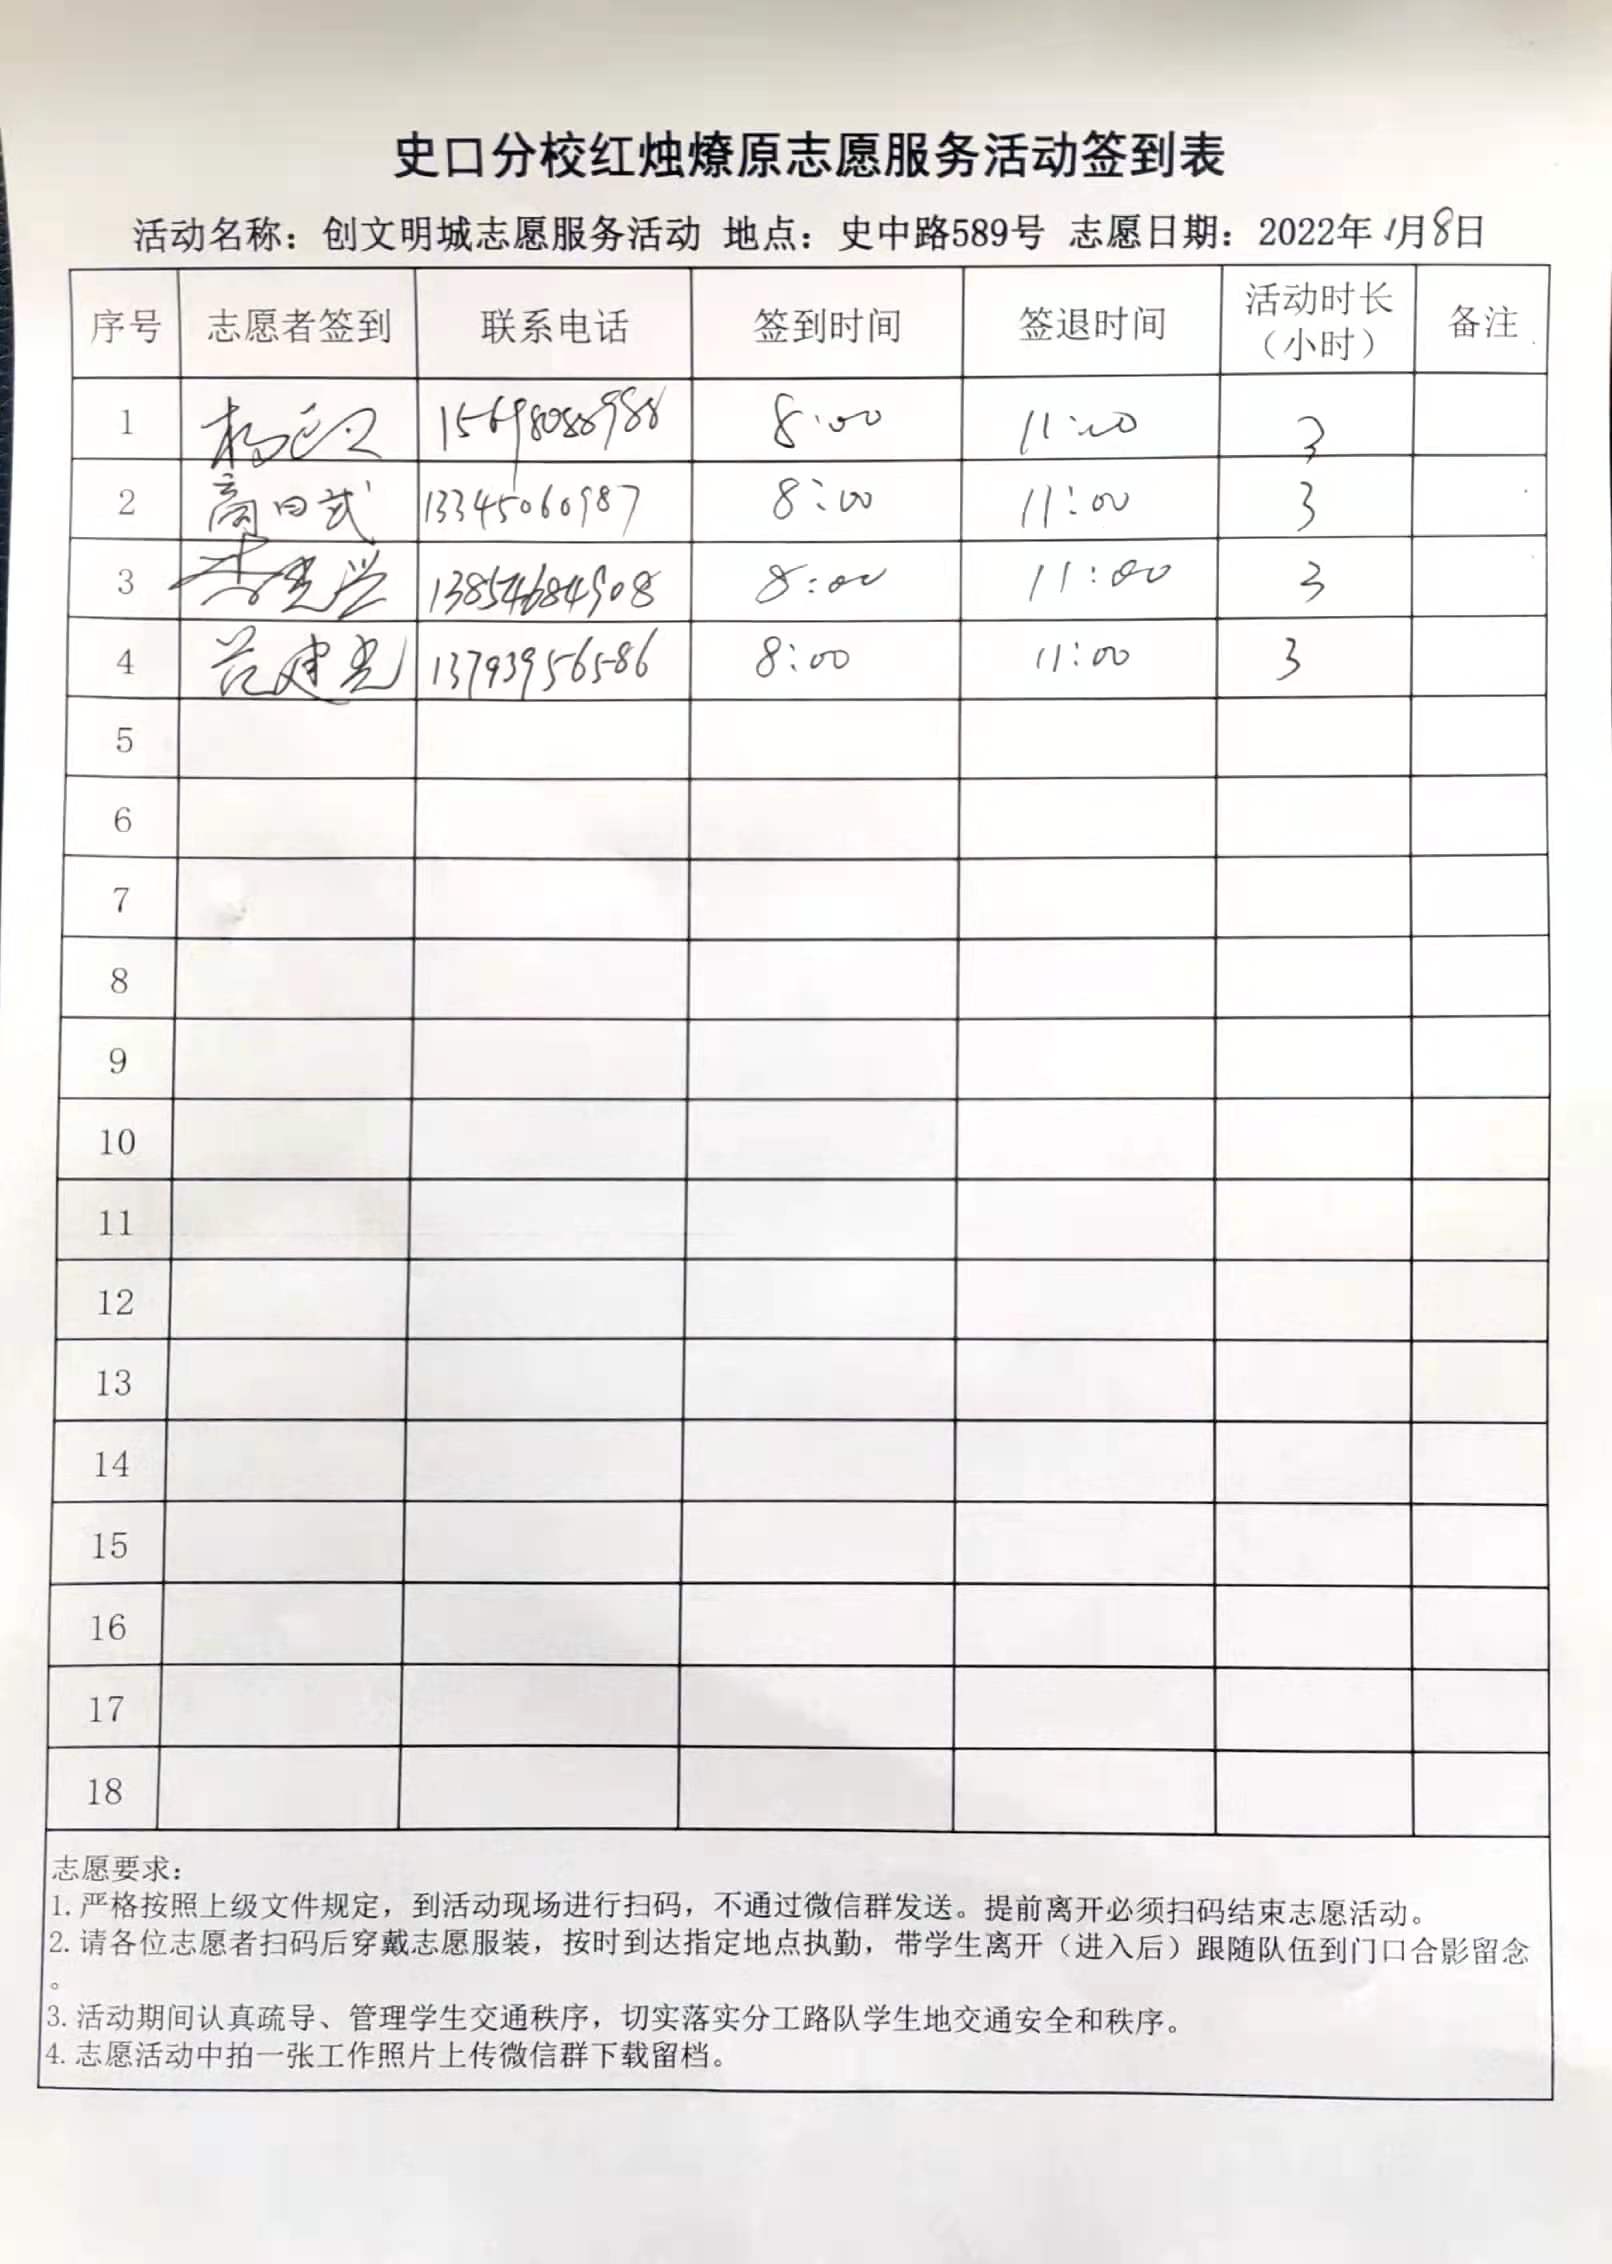 史口分校红烛燎原志愿服务活动签到表
活动名称：创文明城志愿服务活动 地点：史中路589号 志愿日期：2022年1月8日
序号 志愿者签到 联系电话 签到时间 签退时间 活动时长（小时） 备注
1 15698088988 8:00 11:00 3
2 13345060987 8:00 11:00 3
3 李光兴 13854684908 8:00 11:00 3
4 范建光 13793956586 8:00 11:00 3
5
6
7
8
9
10
11
12
13
14
15
16
17
18
志愿要求：
1. 严格按照上级文件规定，到活动现场进行扫码，不通过微信群发送。提前离开必须扫码结束志愿活动。
2. 请各位志愿者扫码后穿戴志愿服装，按时到达指定地点执勤，带学生离开（进入后）跟随队伍到门口合影留念
。
3. 活动期间认真疏导、管理学生交通秩序，切实落实分工路队学生地交通安全和秩序。
4. 志愿活动中拍一张工作照片上传微信群下载留档。